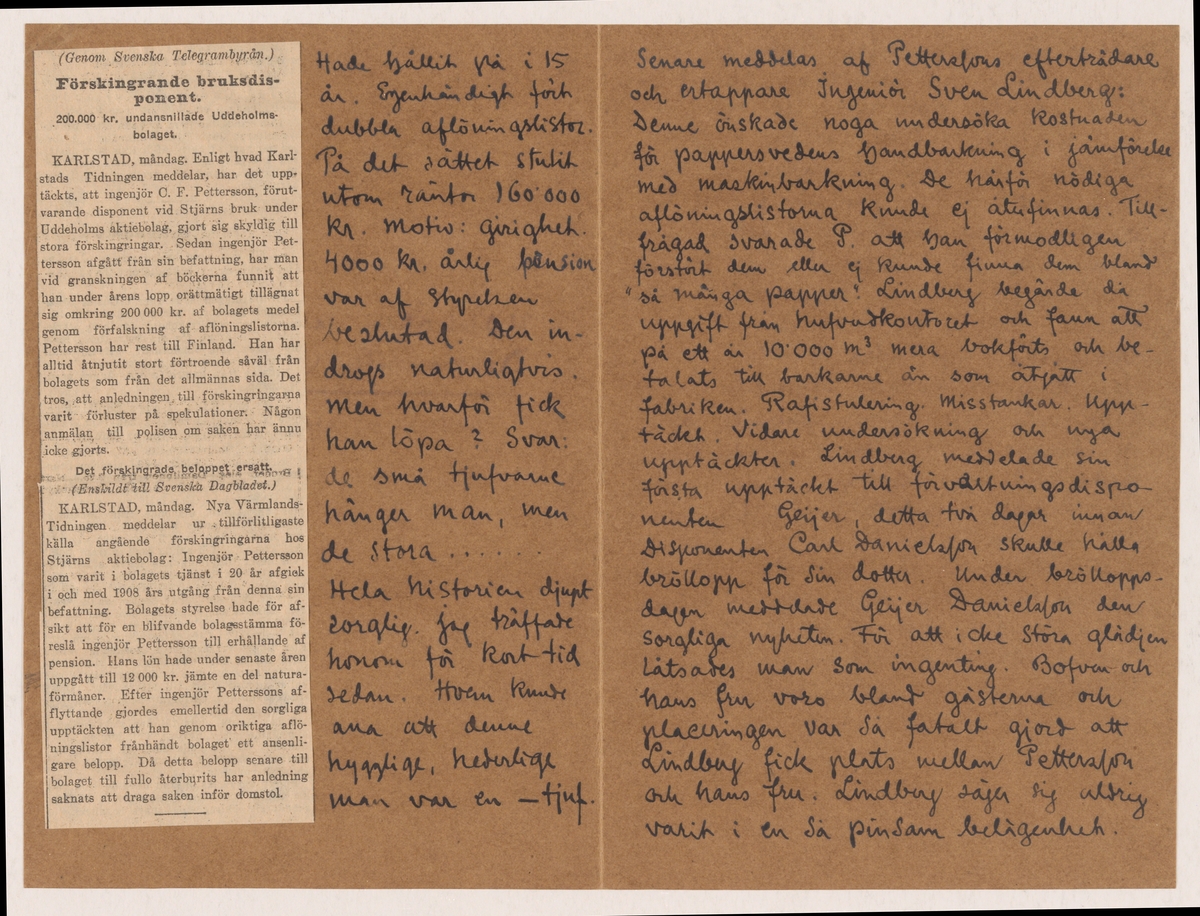 (Genom Svenska Telegrambyrån.)
Förskingrande bruksdis-
ponent.
200.000 kr. undansnillade Uddeholms-
bolaget.
KARLSTAD, måndag. Enligt hvad Karl-
stads Tidningen meddelar, har det upp-
täckts, att ingenjör C. F. Pettersson, förut-
varande disponent vid Stjärns bruk under
Uddeholms aktiebolag, gjort sig skyldig till
stora förskingringar. Sedan ingenjör Pet-
tersson afgått från sin befattning, har man
vid granskningen af böckerna funnit att
han under årens lopp orättmätigt tillägnat
sig omkring 200 000 kr. af bolagets medel
genom förfalskning af aflöningslistorna.
Pettersson har rest till Finland. Han har
alltid åtnjutit stort förtroende såväl från
bolagets som från det allmännas sida. Det
tros, att anledningen till förskingringarna
varit förluster på spekulationer. Någon
anmälan till polisen om saken har ännu
icke gjorts.
Det förskingrade beloppet ersatt.
(Enskildt till Svenska Dagbladet.)
KARLSTAD, måndag. Nya Värmlands-
Tidningen meddelar ur tillförlitligaste
källa angående förskingringarna hos
Stjärns aktiebolag: Ingenjör Pettersson
som varit i bolagets tjänst i 20 år afgick
i och med 1908 års utgång från denna sin
befattning. Bolagets styrelse hade för af-
sikt att för en blifvande bolagsstämma fö-
reslå ingenjör Pettersson till erhållande af
pension. Hans lön hade under senaste åren
uppgått till 12 000 kr. jämte en del natura-
förmåner. Efter ingenjör Petterssons af-
flyttande gjordes emellertid den sorgliga
upptäckten att han genom oriktiga aflö-
ningslistor frånhändt bolaget ett ansenli-
gare belopp. Då detta belopp senare till
bolaget till fullo återburits har anledning
saknats att draga saken inför domstol.
Hade hållit på i 15
år. Egenhändigt fört
dubbla aflöningslistor.
På det sättet stulit
utom räntor 160'000
kr. Motiv: girighet.
4000 kr. årlig pension
var af styrelsen
beslutad. Den in-
drogs naturligtvis.
Men hvarför fick
han löpa? Svar:
de små tjufvarne
hänger man, men
de stora .......
Hela historien djupt
sorglig. Jag träffade
honom för kort tid
sedan. Hvem kunde
ana att denne
hygglige, hederlige
man var en — tjuf.
Senare meddelas af Petterssons efterträdare
och ertappare Ingeniör Sven Lindberg:
Denne önskade noga undersöka kostnaden
för pappersvedens handbarkning i jämförelse
med maskinbarkning. De härför nödiga
aflöningslistorna kunde ej återfinnas. Till-
frågad svarade P. att han förmodligen
förstört dem eller ej kunde finna dem bland
"så många papper". Lindberg begärde då
uppgift från hufvudkontoret och fann att
på ett år 10'000 m³ mera bokförts och be-
talats till barkarne än som åtgått i
fabriken. Rafistulering. Misstankar. Upp-
täckt. Vidare undersökning och nya
upptäckter. Lindberg meddelade sin
första upptäckt till förvaltningsdispo-
nenten Geijer, detta två dagar innan
Disponenten Carl Danielsson skulle hålla
bröllopp för sin dotter. Under bröllopps-
dagen meddelade Geijer Danielsson den
sorgliga nyheten. För att icke störa glädjen
låtsades man som ingenting. Bofven och
hans fru voro bland gästerna och
placeringen var så fatalt gjord att
Lindberg fick plats mellan Pettersson
och hans fru. Lindberg säjer sig aldrig
varit i en så pinsam belägenhet.